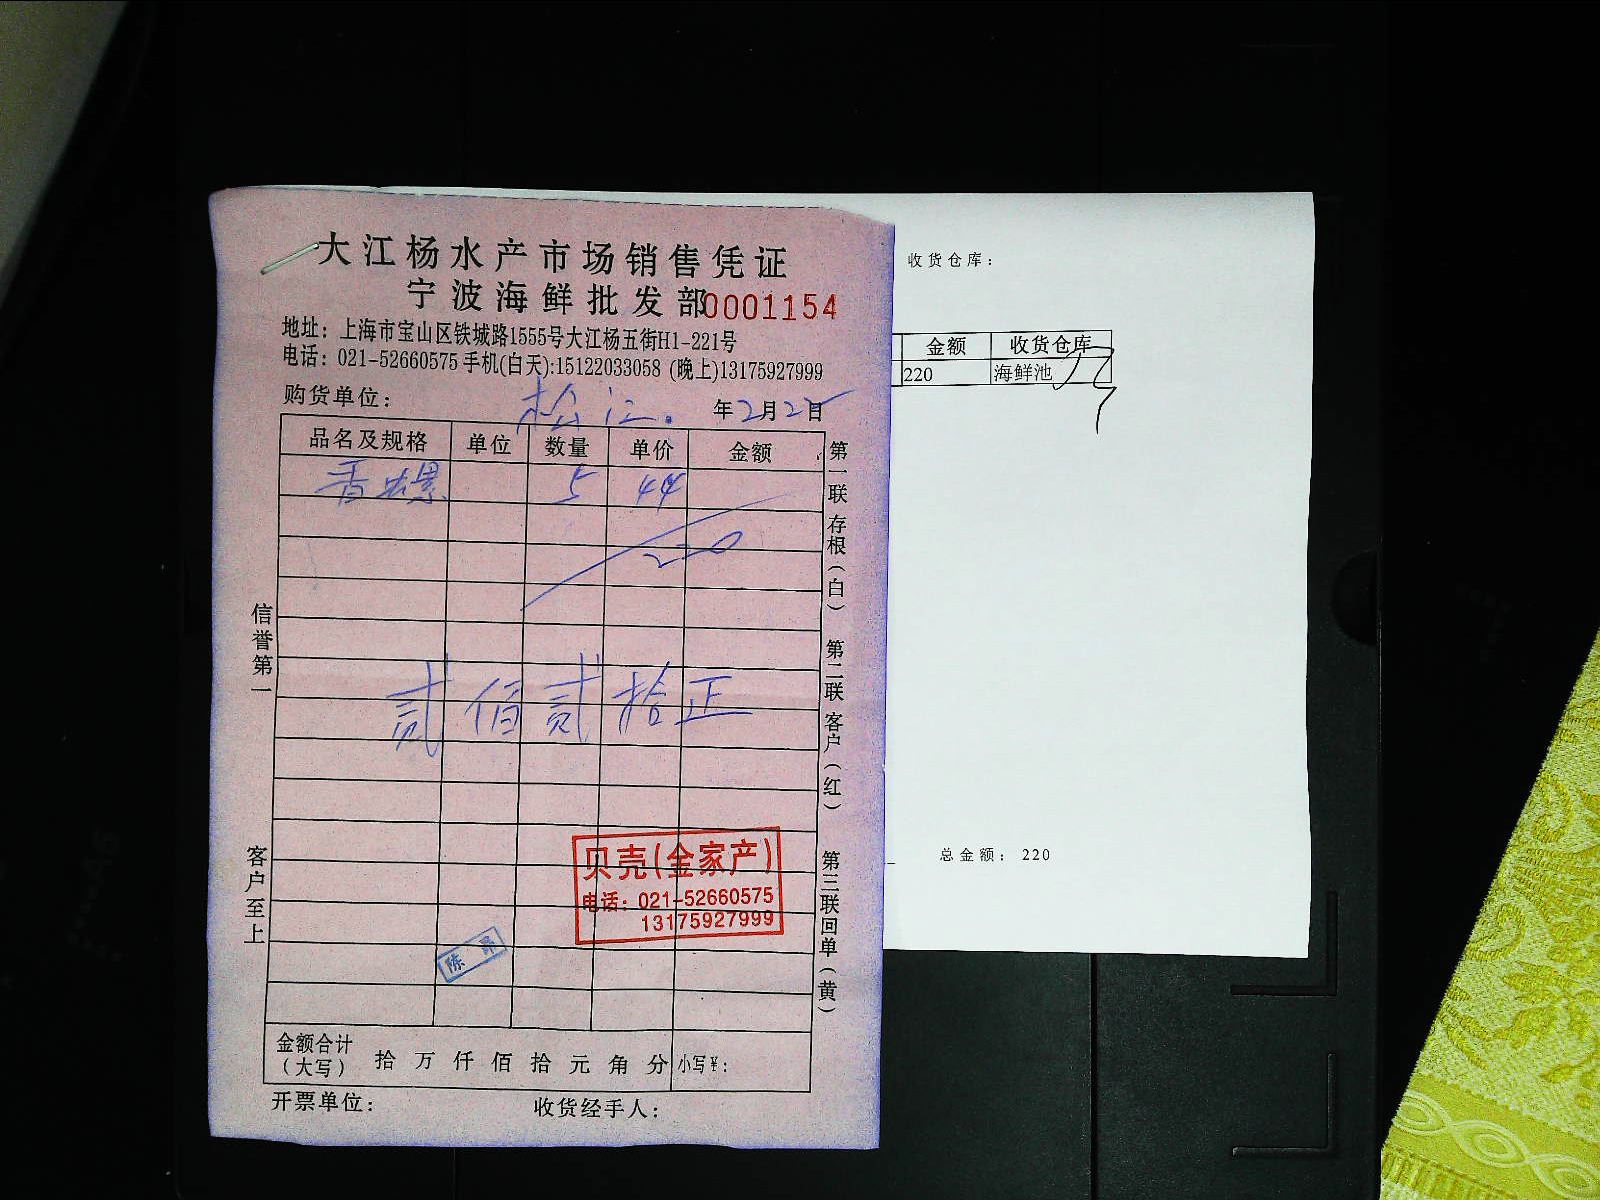 大江杨水产市场销售凭证
宁波海鲜批发部0001154
地址：上海市宝山区铁城路1555号大江杨五街H1-221号
电话：021-52660575 手机(白天):15122033058 (晚上)13175927999
购货单位： 松江. 年2月2日
品名及规格 单位 数量 单价 金额
香螺 5 44
220
贰佰贰拾正
贝壳(金家产)
电话：021-52660575
13175927999
陈
金额合计
(大写) 拾 万 仟 佰 拾 元 角 分 小写¥：
开票单位： 收货经手人：
信誉第一
客户至上
第一联 存根(白)
第二联 客户(红)
第三联 回单(黄)
收货仓库：
金额 收货仓库
220 海鲜池
总金额： 220